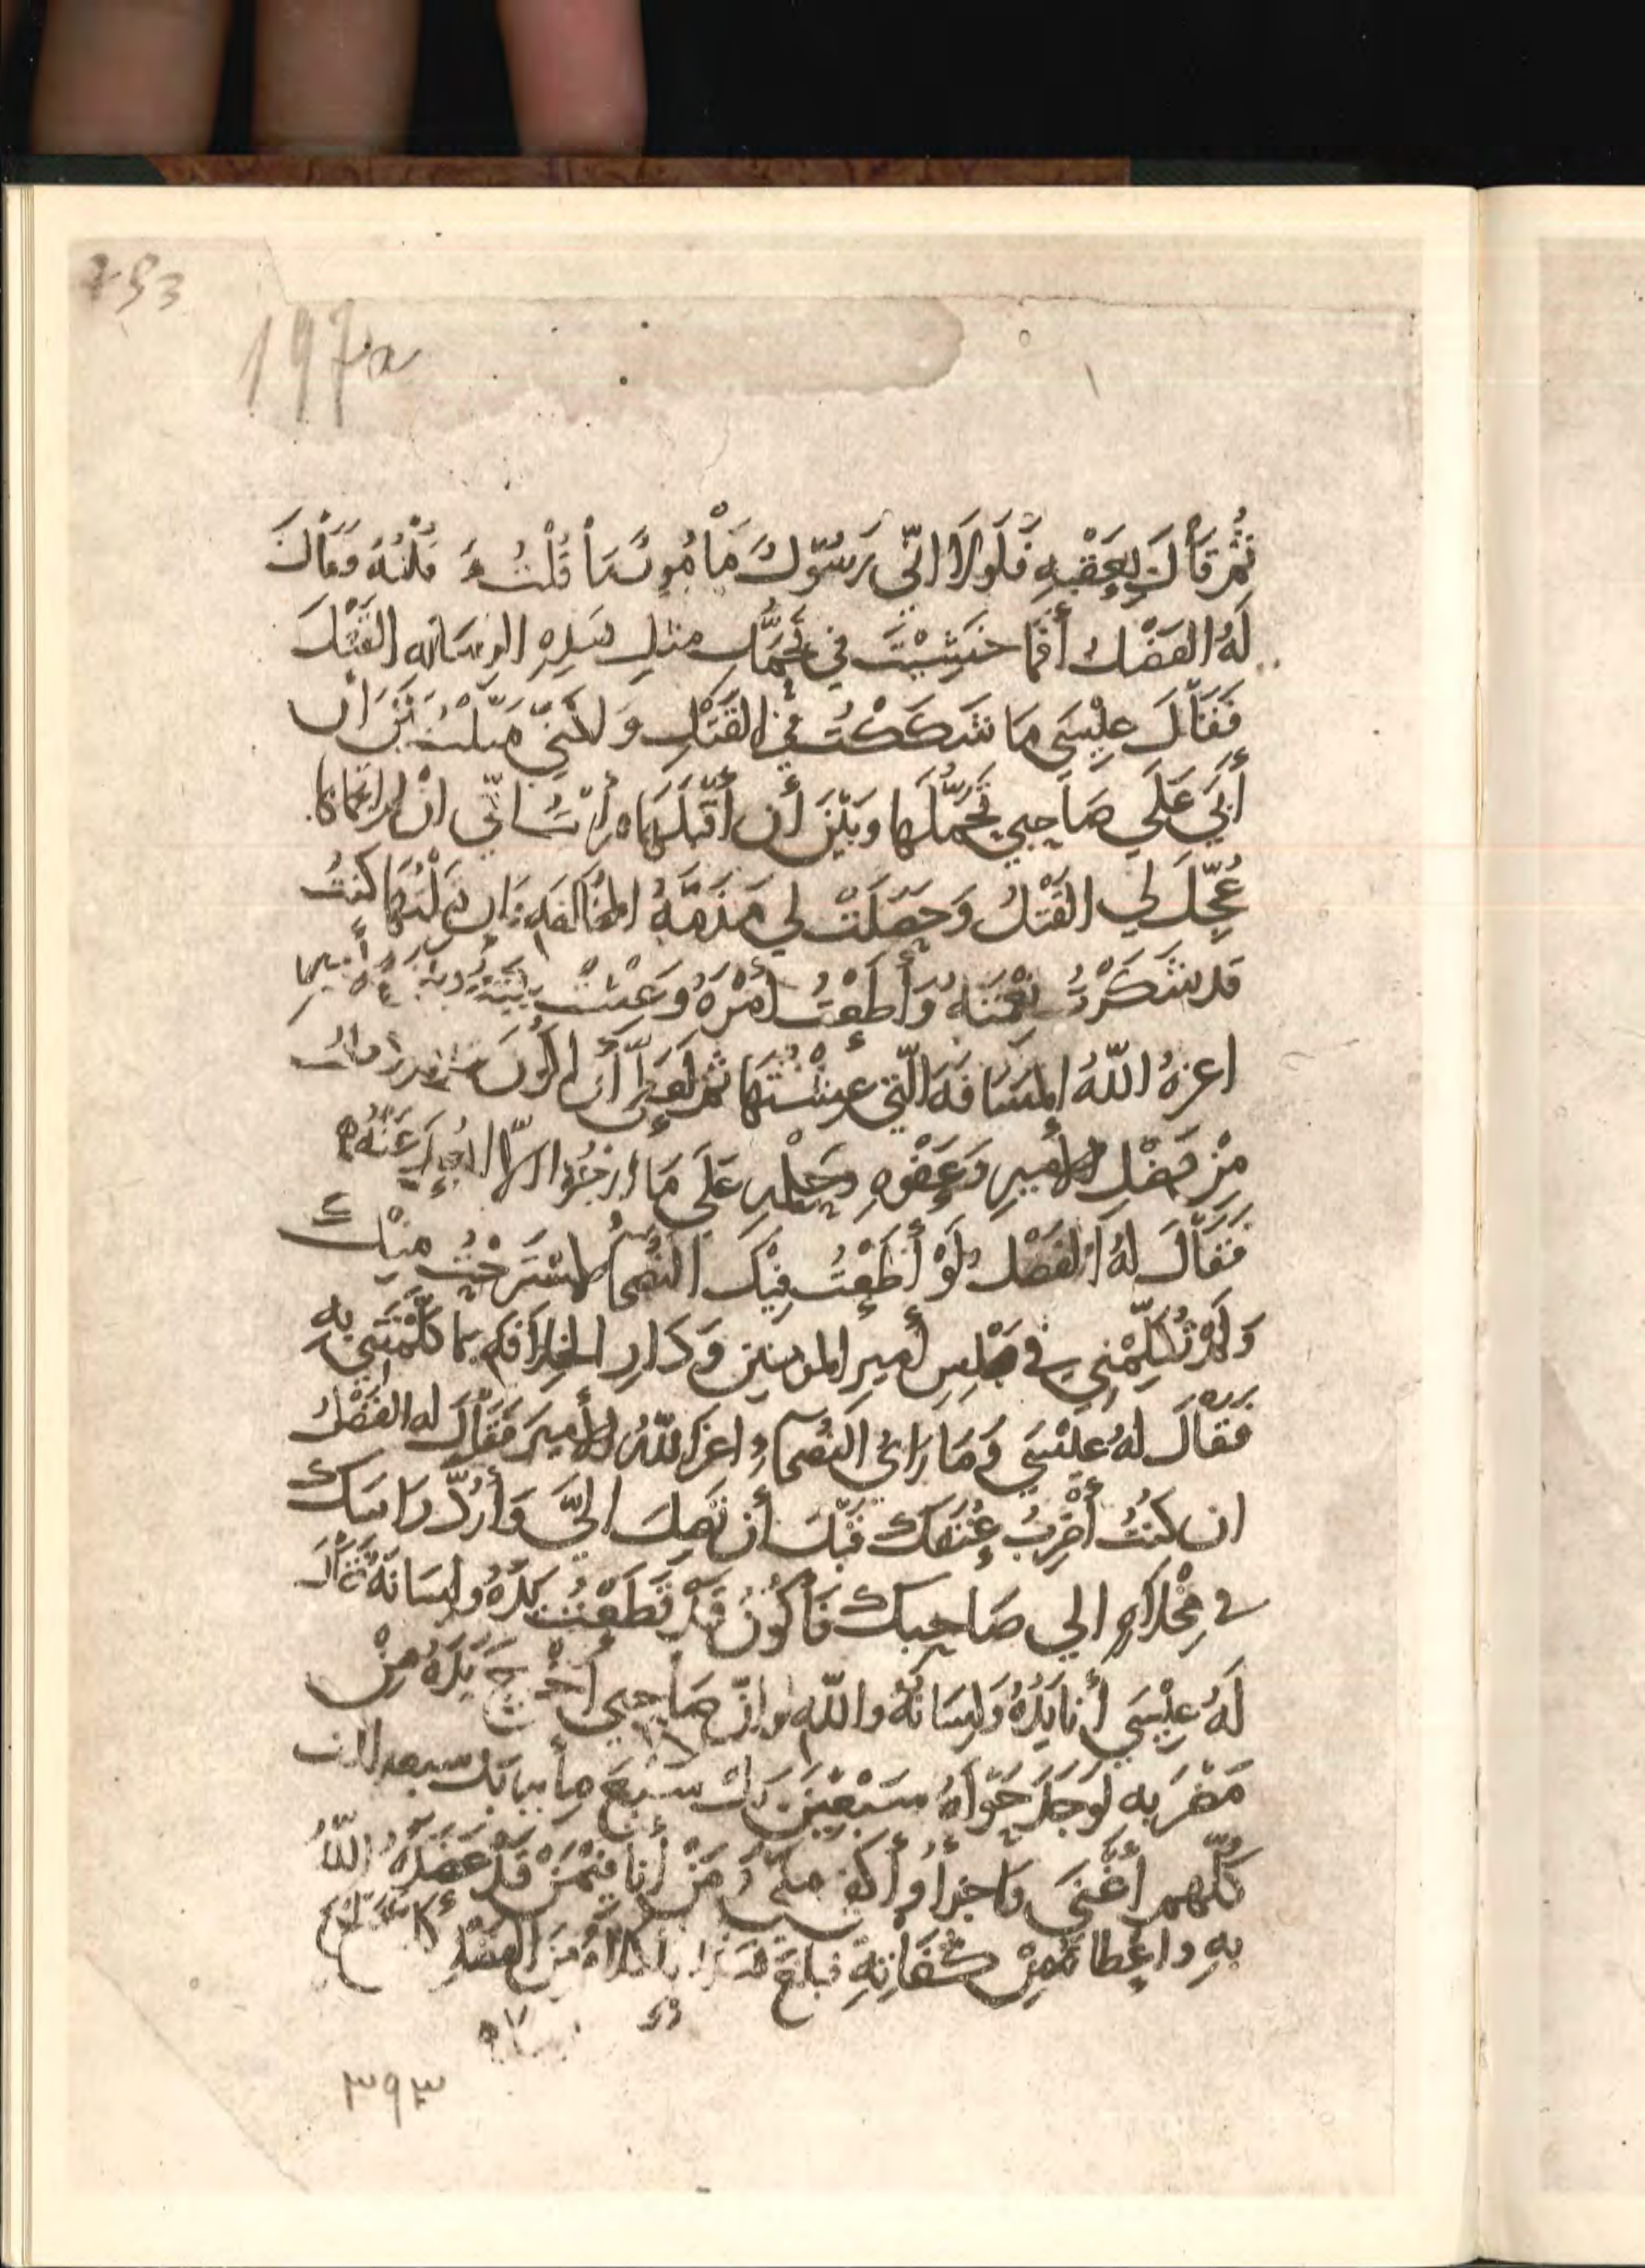 253
197a
ثُمَّ قَالَ بِعَقْبِهِ فَلَولَا انّي رَسُوْلٌ مَأْمُورٌ مَا قُلْتُ مَا قُلْتُهُ فَقَالَ
لَهُ الفَضْلُ أَفَمَا خَشِيْتَ في تَحَمُّلِ مثلِ هَذِهِ الرسَالَه القَتْلَ
فَقَالَ عِيْسَى مَا شَكَكْتُ في القَتْلِ وَلكنّي مَيّلْتُ بَيْنَ ان
أَبَى عَلَي صَاحِبِي تَحَمُّلَهَا وَبَيْنَ أَن أَقْبَلَهَا فرأيتُ انّي انْ لم اتحملها
عُجِّلَ لي القَتْلُ وَحَصَلَتْ لي مَذَمَّةُ المُخَالَفَهِ وَان حملتُهَا كنتُ
قد شَكَرْتُ نِعْمَتَهُ وَأَطَعْتُ أَمْرَهُ وَعِشْتُ بَيْنَهُ وبَيْنَ الأمير
اعزهُ اللّهُ المَسَافَهَ الّتي عِشْتُهَا ثم لَعَلّ أَن اكُونَ
مِنْ فَضْلِ الأميرِ وَعَفْوهِ وَحِلْمِهِ عَلَى مَا ارجُوا الّا ابعدَ عَنْهُ
فَقَالَ لهُ الفَضْلُ لَوْ أَطَعْتُ فِيْكَ النُصَحَاءَ لاستَرَحْتُ مِنْكَ
وَلَمْ تُكَلِّمْنِي في مَجْلِسِ أَمِيرِ المومنين وَدَارِ الخِلَافَهِ بِمَا كَلَّمْتَنِي بِهِ
فقالَ لهُ عِيْسَى وَمَا رَائُ النُصَحَاءِ اعزَ اللّهُ الأميرَ فَقَالَ له الفَضْلُ
ان كنتُ أَضْرِبُ عُنُقَكَ قَبْلَ أن تَصِلَ الَيَّ وَأَرُدَّ رَاسَكَ
في مِخْلَاهٍ الي صَاحِبِكَ فَأَكُونُ قَدْ قَطَعْتُ يَدَهُ ولِسَانَهُ فَقَالَ
لَهُ عِيْسَى أَنا يَدُهُ وَلِسَانُهُ واللّهِ وانّ صَاحِبِي أَخْرَجَ يَدَهُ مِنْ
مَضْرَبِهِ لَوَجَدَ حَوْلَهُ سَبْعِيْنَ بَلْ سَبْعَ مِأَيهٍ بَل سبعه الاف
كلّهم أَغْنَى وَاجزأُ وأَكفى مِنّي وَمَنْ أَنا فِيْمَنْ قَدْ عَضَدَهُ اللّهُ
بهِ واعْطَاهُ مِنْ كُفَاتِهِ فبلغَ هَذَا الكلامُ مِنَ الفَضْلِ كلَّ مَبْلَغٍ
٣٩٣